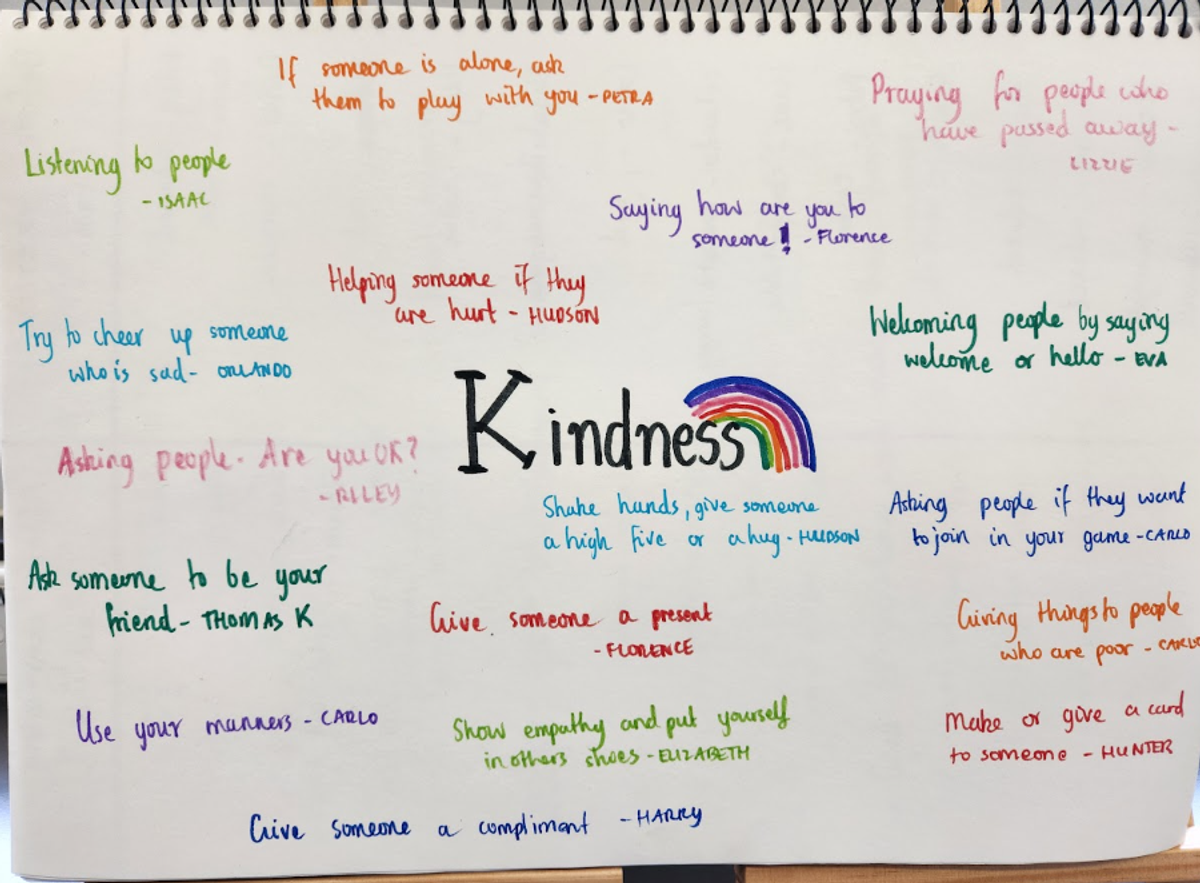 If someone is alone, ask
them to play with you - PETRA
Praying for people who
have passed away -
LIZZIE
Listening to people
- ISAAC
Saying how are you to
someone! - Florence
Helping someone if they
are hurt - HUDSON
Try to cheer up someone
who is sad - ORLANDO
Welcoming people by saying
welcome or hello - EVA
Kindness
Asking people. Are you OK?
- RILEY
Shake hands, give someone
a high five or a hug - HUDSON
Asking people if they want
to join in your game - CARLO
Ask someone to be your
friend - THOMAS K
Give someone a present
- FLORENCE
Giving things to people
who are poor - CARLO
Use your manners - CARLO
Show empathy and put yourself
in others shoes - ELIZABETH
Make or give a card
to someone - HUNTER
Give someone a compliment - HARRY